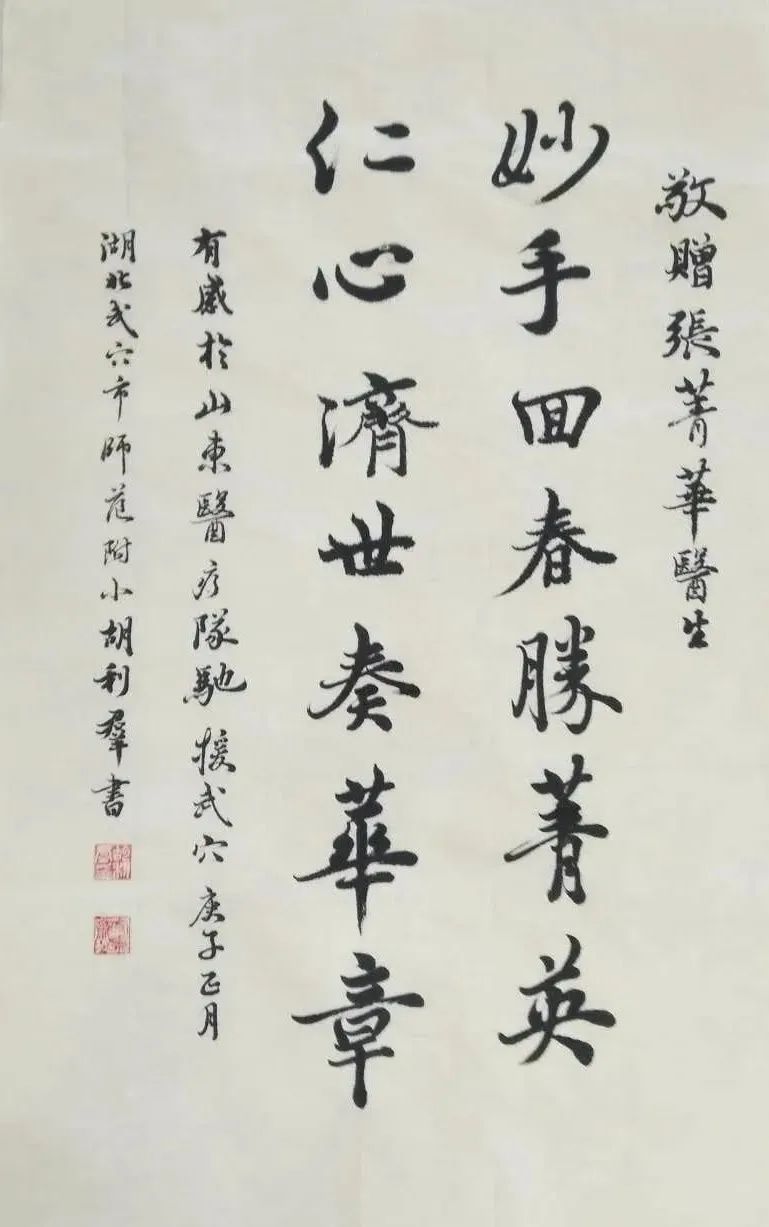 敬贈張菁華醫生
妙手回春勝菁英
仁心濟世奏華章
有感於山東醫疗隊馳援武穴 庚子正月
湖北武穴市師范附小胡利羣書